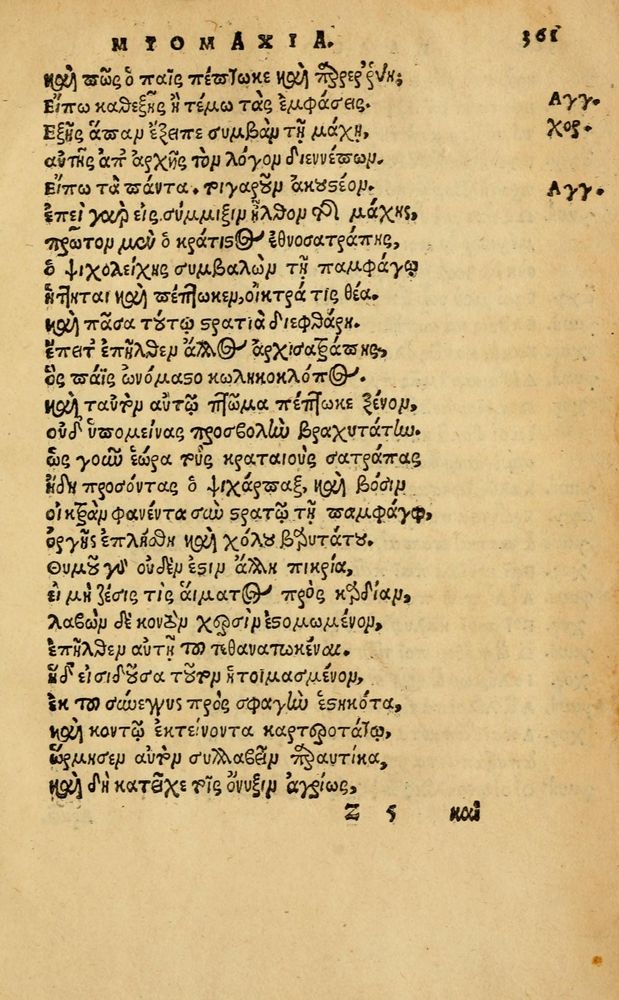 ΜΥΟΜΑΧΙΑ. 361
καὶ πῶς ὁ παῖς πέπτωκε καὶ
Εἴπω καθεξῆς ἢ τέμω τὰς ἐμφάσεις. Αγγ.
Εξῆς ἅπαν ἔξειπε συμβὰν τῇ μάχῃ, χορ.
αὐτῆς ἀπ' ἀρχῆς τὸν λόγον διεννέπων.
Εἴπω τὰ πάντα. τιγαροῦν ἀκουστέον. Αγγ.
ἐπεὶ γὰρ εἰς σύμμιξιν ἦλθον μάχης,
πρῶτον μὲν ὁ κράτιστος ἐθνοσατράπης,
ὁ ψιχολείχης συμβαλὼν τῇ παμφάγῳ
ἥττηται καὶ πέπτωκεν, οἰκτρά τις θέα.
καὶ πᾶσα τούτῳ στρατιὰ διεφθάρη.
ἔπειτ' ἐπῆλθεν ἄλλος ἀρχισατράπης,
ὃς παῖς ὠνόμαστο κωληκοκλόπος.
καὶ ταυτὸν αὐτῷ πτῶμα πέπτωκε ξένον,
οὐδ' ὑπομείνας προσβολὴν βραχυτάτην.
ὡς γοῦν ἑώρα τοὺς κραταιοὺς σατράπας
ἤδη προσόντας ὁ ψιχάρπαξ, καὶ βόσιν
οἰκτρὰν φανέντα σὺν στρατῷ τῇ παμφάγῳ,
ὀργῆς ἐπλήσθη καὶ χόλου βαρυτάτου.
Θυμοῦ γὰρ οὐδέν ἐστιν ἄλλη πικρία,
εἰ μὴ ζέσις τις αἵματος πρὸς καρδίαν,
λαβὼν δὲ κοντὸν χερσὶν ἐστομωμένον,
ἐπῆλθεν αὐτῇ τοῦ τεθανατωκέναι.
ἡ δ' εἰσιδοῦσα τοῦτον ἡτοιμασμένον,
ἐκ τοῦ σύνεγγυς πρὸς σφαγὴν ἑστηκότα,
καὶ κοντῷ ἐκτείνοντα καρτερωτάτῳ,
ὥρμησεν αὐτὸν συλλαβεῖν παραυτίκα,
καὶ δὴ κατέσχε τοῖς ὄνυξιν ἀγρίως,
Z 5 καὶ